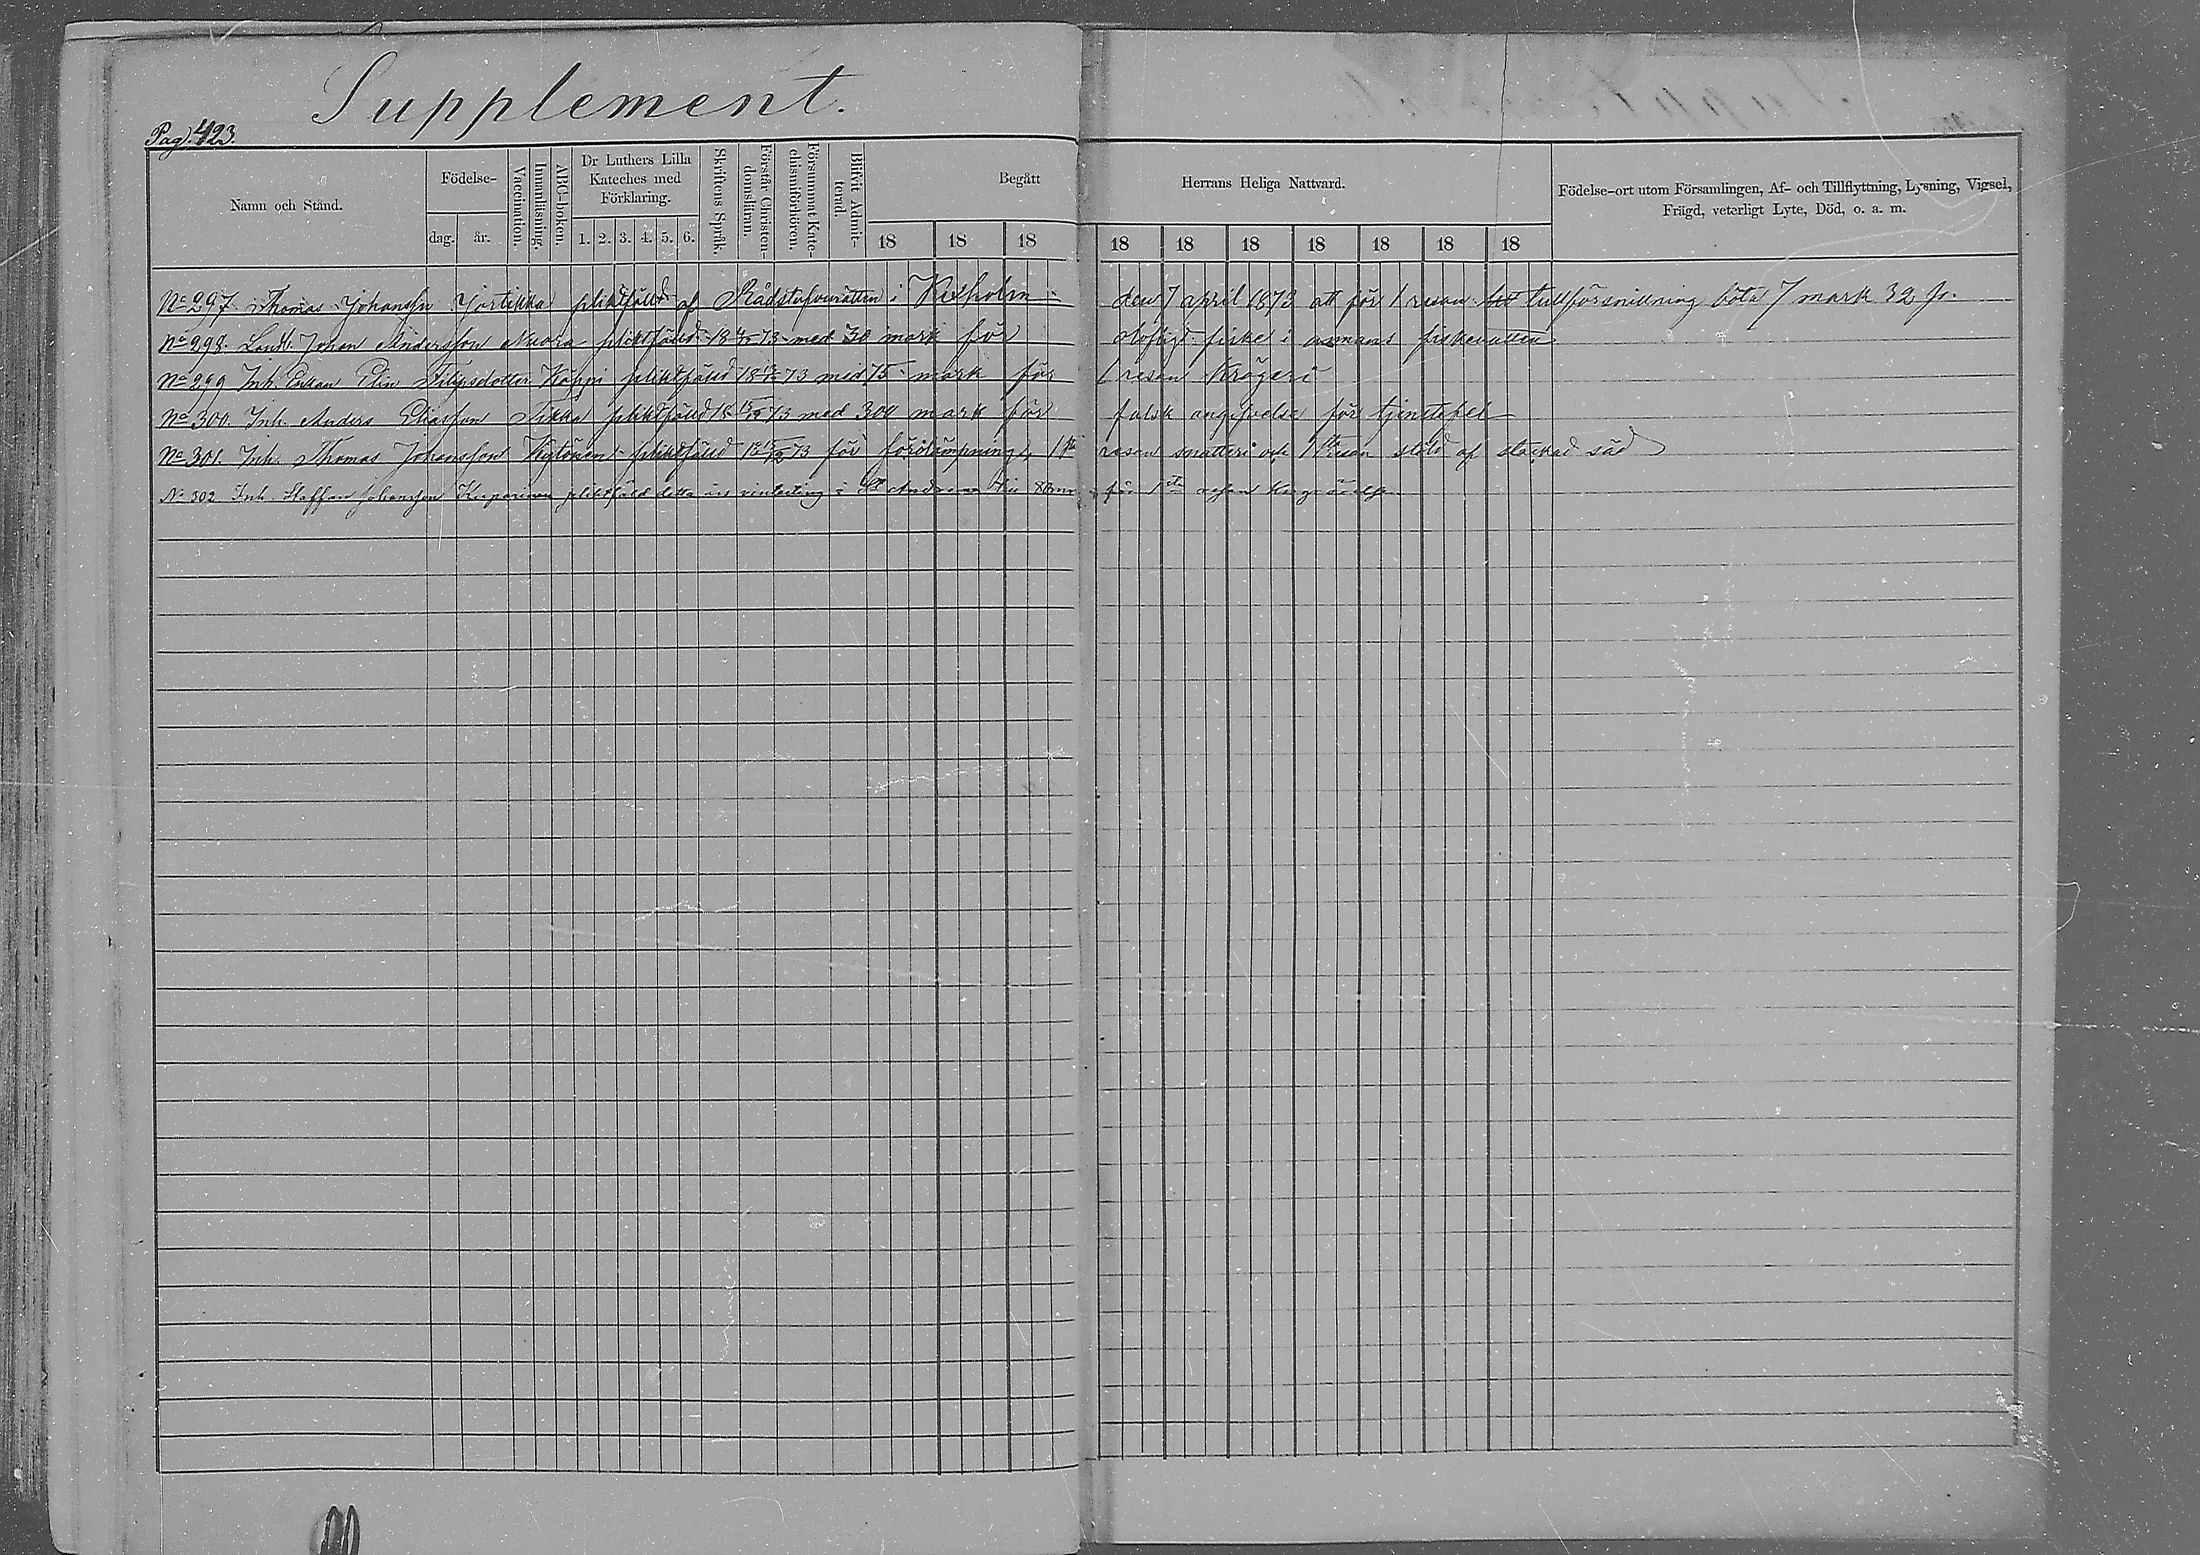 Supplement.
Pag. 423.
Namn och Stånd.
Födelse-
dag.
år.
Vaccination.
Innanläsning.
ABC-boken.
Dr Luthers Lilla
Kateches med
Förklaring.
1. 2. 3. 4. 5. 6.
Skriftens Språk.
Förstår Christen-
domsläran.
Försummat Kate-
chismiförhören.
Blivit Admit-
terad.
Begått
18 18 18
Herrans Heliga Nattvard.
18 18 18 18 18 18 18
Födelse-ort utom Församlingen, Af- och Tillflyttning, Lysning, Vigsel,
Frägd, veterligt Lyte, Död, o. a. m.
No 297. Thomas Johansson pliktfälld af Rådstufvurätten i Kexholm den 7 april 1873 att för 1 resan tullförsnillning böta 7 mark 32 p.
No 298. Johan Andersson Nuora pliktfälld 18 73 med 30 mark för olofligt fiske i annans fiskevatten
No 299 Inh. Enkan Elin Filipsdotter Käppi pliktfälld 18 73 med 75 mark för 1 resan Krögeri
No 300. Inh. Anders Eliasson Tikka pliktfälld 18 73 med 300 mark för falsk angifvelse för tjenstefel
No 301. Inh. Thomas Johansson pliktfälld 18 73 för förolämpning, 1 resan snatteri och 1 resan stöld af stackad säd
No 302 Inh. Staffan Johansson Kuparinen pliktfälld detta års vinterting i St Andreae för 1sta resan